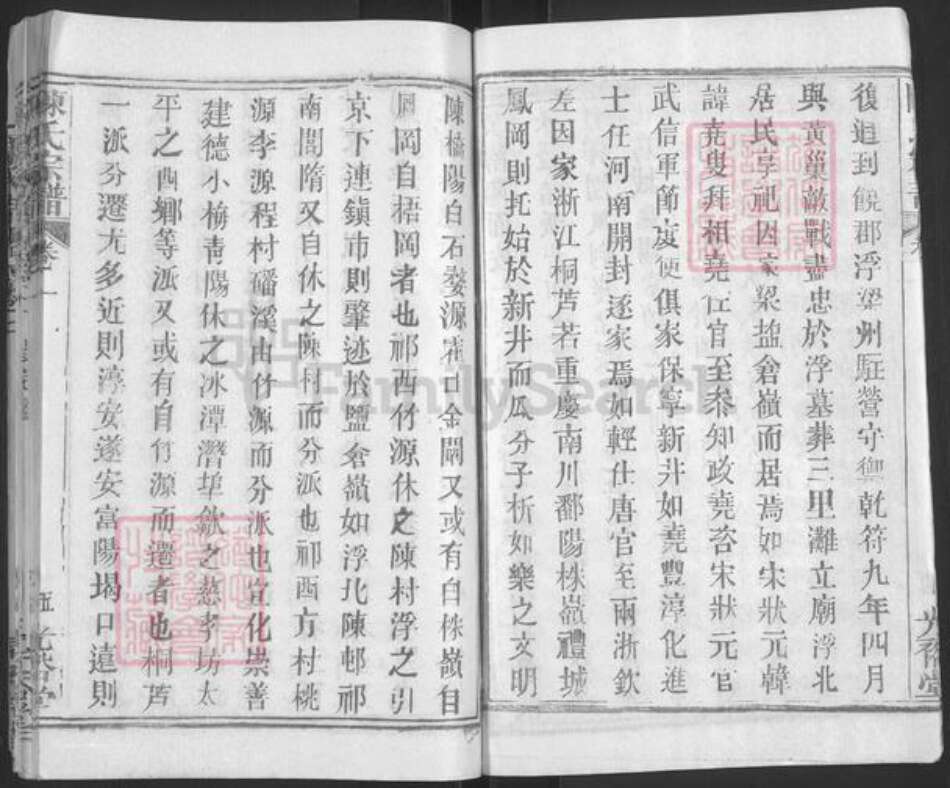 復追到饒郡浮梁州駐營守禦乾符九年四月
與黃巢敵戰盡忠於浮墓葬三里灘立廟浮北
居民享祀因家梁盬倉嶺而居焉如宋狀元韓
諱堯叟拜相堯佐官至叅知政堯咨宋狀元官
武信軍節度使俱家保寧新井如堯豐淳化進
士任河南開封遂家焉如輕仕唐官至兩浙欽
左因家浙江桐芦若重慶南川鄱陽株嶺禮城
鳳岡則托始於新井而瓜分子析如樂之文明
陳橋陽白石婺源霍口金閧又或有自侏嶺自
鳳岡自梧岡者也祁西竹源休之陳村浮之引
京下連鎭市則肇迹於鹽倉嶺如浮北陳邨祁
南閶隋又自休之陳村而分派也祁西方村桃
源李源程村磻溪由竹源而分派也宣化崇善
建德小梅靑陽休之冰潭潛埠歙之慈孝坊太
平之西鄉等派又或有自竹源而遷者也桐芦
一派分遷尤多近則淳安遂安富陽場口遠則
陳氏宗譜
卷一
五
FamilySearch